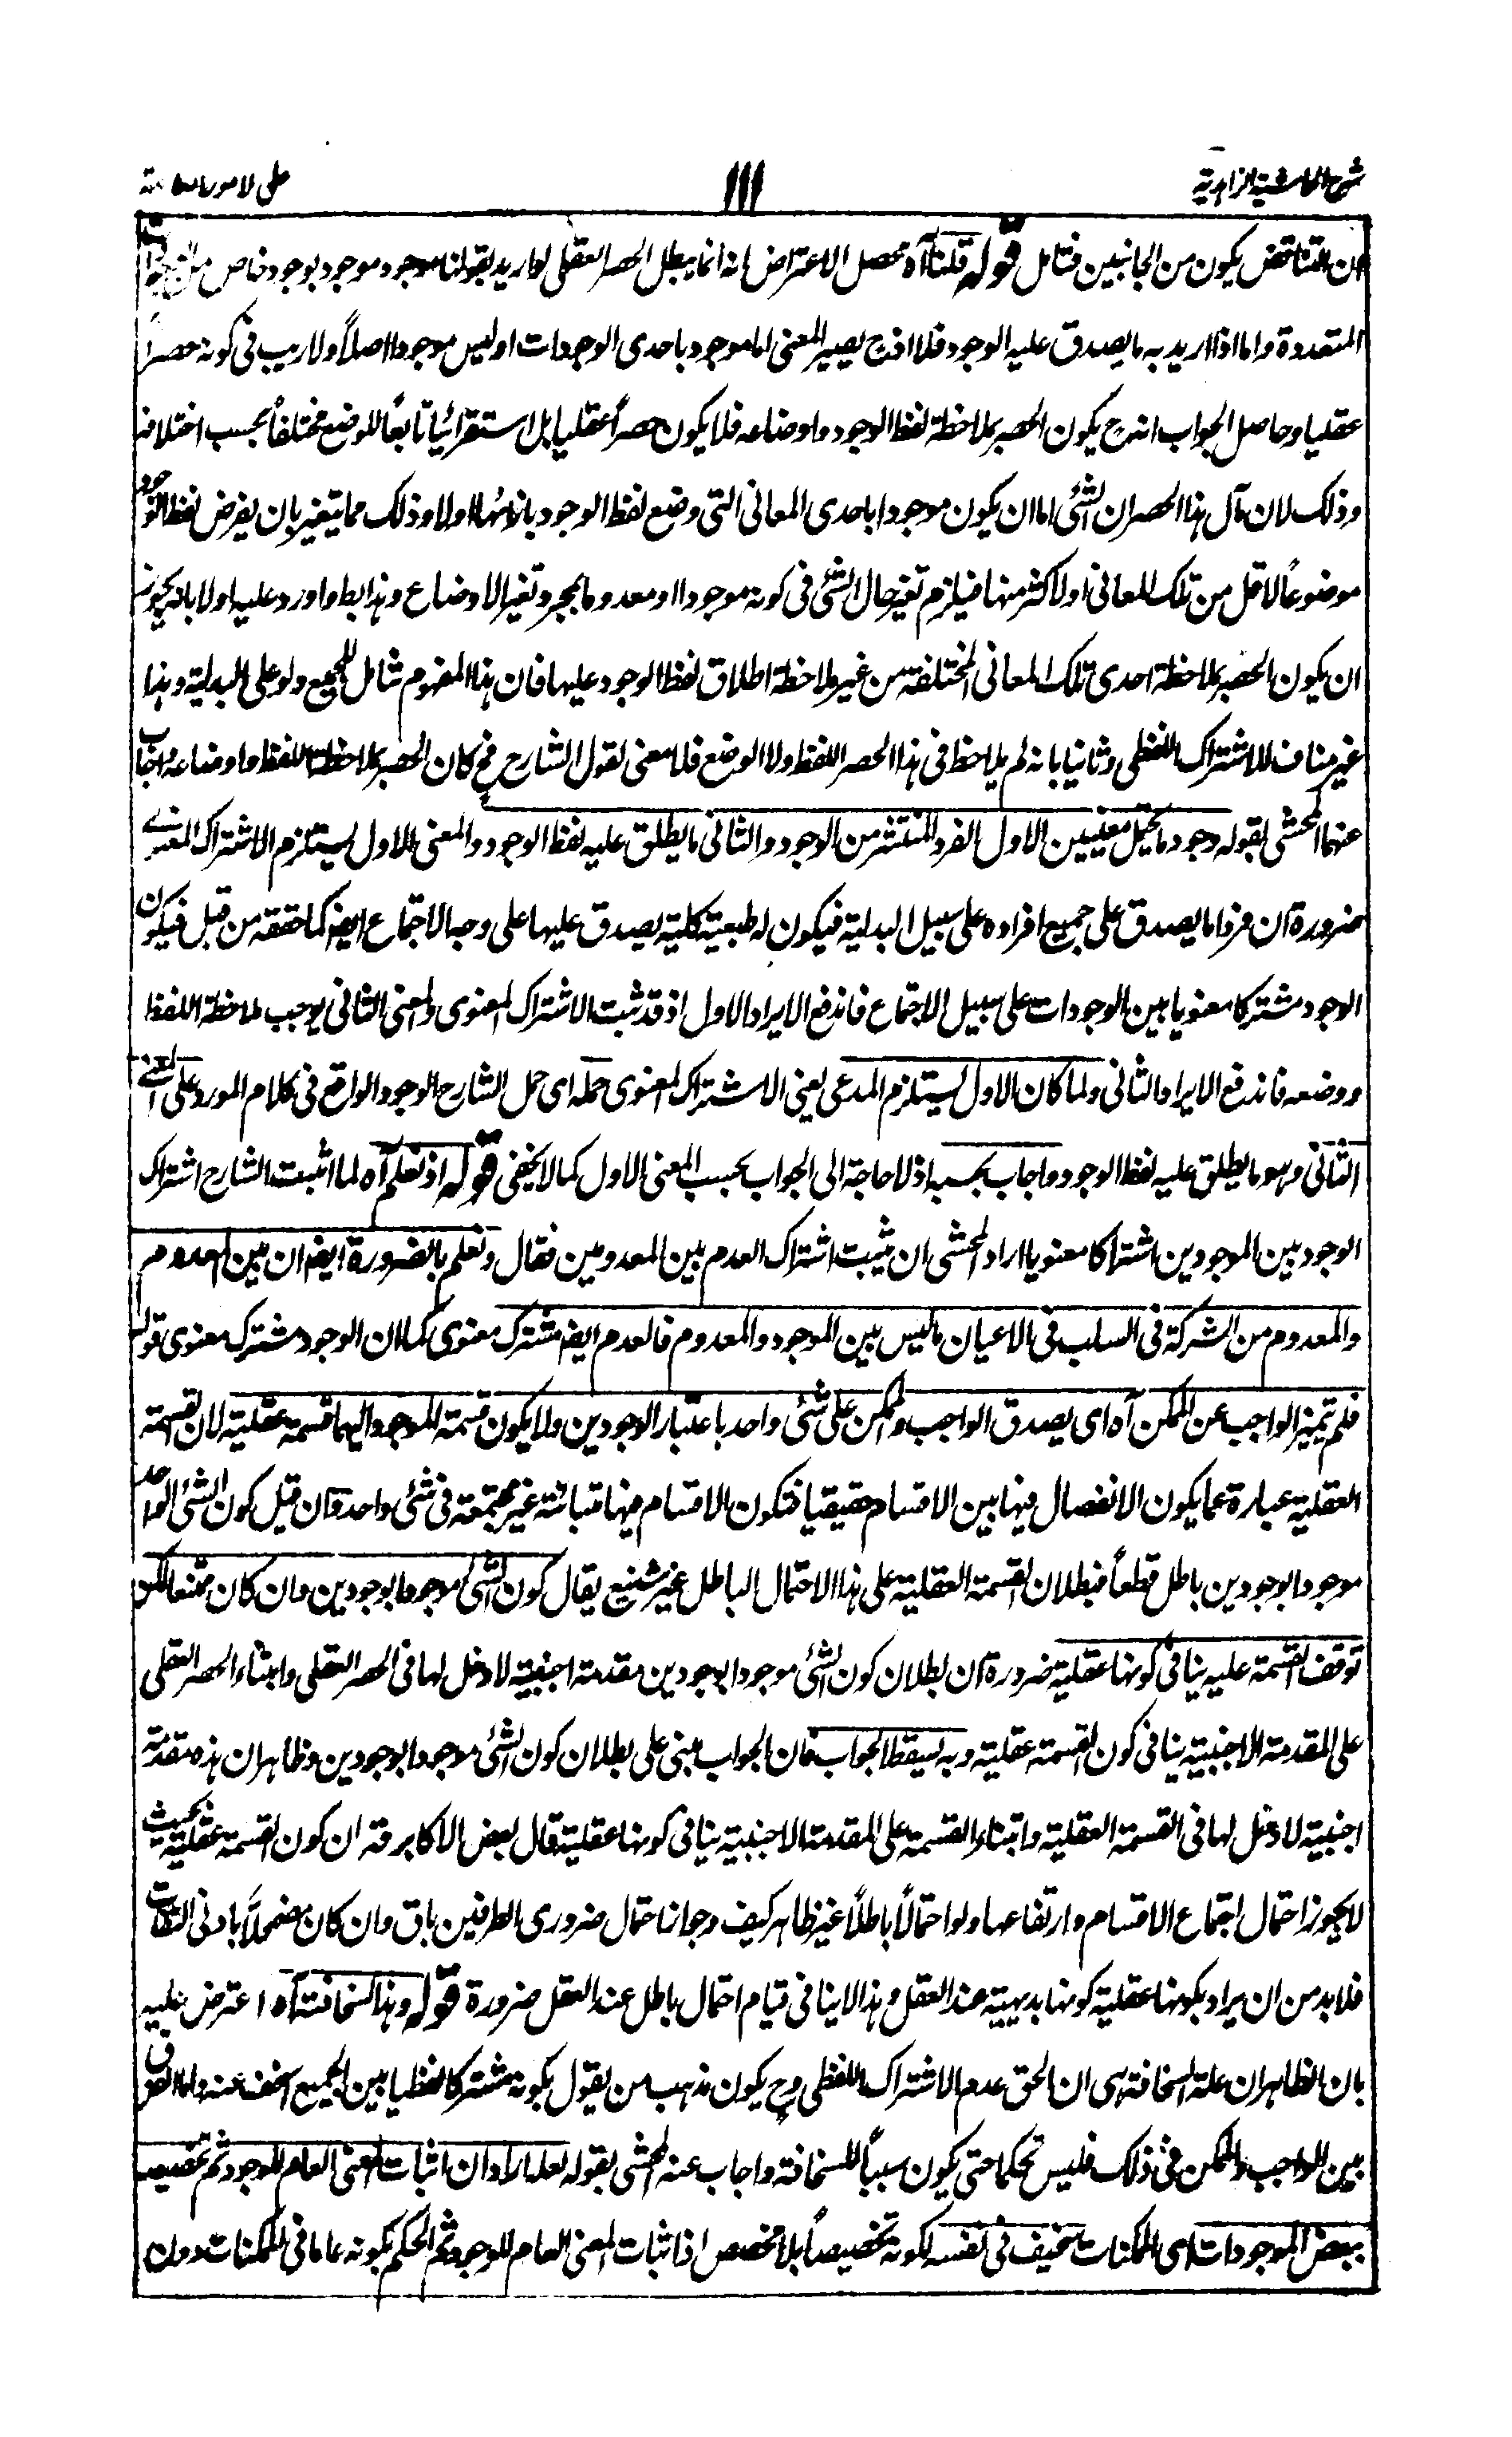 شرح الحاشية الزاهدية
١١١
على الامور العامة
ان التناقض يكون من الجانبين فتامل قوله قلنا آه محصل الاعتراض انه انما يبطل الحصر العقلى لو اريد بقولنا موجود موجود بوجود خاص من الوجودات
المتعددة واما اذا اريد به ما يصدق عليه الوجود فلا اذ ح يصير المعنى اما موجود باحدى الوجودات او ليس موجودا اصلاً ولا ريب فى كونه حصراً
عقليا وحاصل الجواب انه ح يكون الحصر بملاحظة لفظ الوجود واوضاعه فلا يكون حصراً عقليا بل استقرائيا تابعاً للوضع مختلفاً بحسب اختلافه
وذلك لان مآل هذا الحصر ان الشئى اما ان يكون موجودا باحدى المعانى التى وضع لفظ الوجود بازائها اولا وذلك مما يتغير بان يفرض لفظ الوجود
موضوعاً لاقل من تلك المعانى او لاكثر منها فيلزم تغير حال الشئى فى كونه موجودا او معدوما بمجرد تغير الاوضاع وهذا بط واورد عليه اولا بانه يجوز
ان يكون الحصر بملاحظة احدى تلك المعانى المختلفة من غير ملاحظة اطلاق لفظ الوجود عليها فان هذا المفهوم شامل للجميع ولو على البدلية وهذا
غير مناف للاشتراك اللفظى وثانيا بانه لم يلاحظ فى هذا الحصر اللفظ ولا الوضع فلا معنى لقول الشارح فح كان الحصر بملاحظة اللفظ واوضاعه واجاب
عنهما المحشى بقوله وجود ما يحتمل معنيين الاول الفرد المنتشر من الوجود والثانى ما يطلق عليه لفظ الوجود والمعنى الاول يستلزم الاشتراك المعنوى
ضرورة ان فردا ما يصدق على جميع افراده على سبيل البدلية فيكون له طبيعة كلية يصدق عليها على وجه الاجتماع ايضا كما حققه من قبل فيكون
الوجود مشتركا معنويا بين الوجودات على سبيل الاجتماع فاندفع الايراد الاول اذ قد ثبت الاشتراك المعنوى والمعنى الثانى يوجب ملاحظة اللفظ
ووضعه فاندفع الايراد الثانى ولما كان الاول يستلزم المدعى يعنى الاشتراك المعنوى حمله اى حمل الشارح الوجود الواقع فى كلام المورد على المعنى
الثانى وهو ما يطلق عليه لفظ الوجود واجاب بحسبه اذ لا حاجة الى الجواب بحسب المعنى الاول كما لا يخفى قوله اذ نعلم آه لما اثبت الشارح اشتراك
الوجود بين الموجودين اشتراكا معنويا اراد المحشى ان يثبت اشتراك العدم بين المعدومين فقال ونعلم بالضرورة ايضا ان بين المعدوم
والمعدوم من الشركة فى السلب فى الاعيان ما ليس بين الموجود والمعدوم فالعدم ايضا مشترك معنوى كما ان الوجود مشترك معنوى قوله
فلم يتميز الواجب عن الممكن آه اى يصدق الواجب والممكن على شئى واحد باعتبار الوجودين ولا يكون قسمة الموجود اليهما قسمة عقلية لان القسمة
العقلية عبارة عما يكون الانفصال فيها بين الاقسام حقيقيا فتكون الاقسام فيها متباينة غير مجتمعة فى شئى واحد وان قيل كون الشئى الواحد
موجودا بوجودين باطل قطعاً فبطلان القسمة العقلية على هذا الاحتمال الباطل غير شنيع يقال كون الشئى موجودا بوجودين وان كان ممتنعا لكن
توقف القسمة عليه ينافى كونها عقلية ضرورة ان بطلان كون الشئى موجودا بوجودين مقدمة اجنبية لا دخل لها فى الحصر العقلى وابتناء الحصر العقلى
على المقدمة الاجنبية ينافى كون القسمة عقلية وبه يسقط الجواب فان الجواب مبنى على بطلان كون الشئى موجودا بوجودين وظاهر ان هذه مقدمة
اجنبية لا دخل لها فى القسمة العقلية وابتناء القسمة على المقدمة الاجنبية ينافى كونها عقلية قال بعض الاكابر قه ان كون القسمة عقلية بحيث
لا يجوز احتمال اجتماع الاقسام وارتفاعها ولو احتمالاً باطلاً غير ظاهر كيف وجواز احتمال ضرورى الطرفين باق وان كان مضمحلاً بادنى التفات
فلا بد من ان يراد بكونها عقلية كونها بديهية عند العقل وهذا لا ينافى قيام احتمال باطل عند العقل ضرورة قوله وهذا لسخافته آه اعترض عليه
بان الظاهر ان علة السخافة هى ان الحق عدم الاشتراك اللفظى وح يكون مذهب من يقول بكونه مشتركا لفظيا بين الجميع اسخف عنه واما الفرق
بين الواجب والممكن فى ذلك فليس تحكما حتى يكون سبباً للسخافة واجاب عنه المحشى بقوله لعله اراد ان اثبات المعنى العام للوجود ثم تخصيصه
ببعض الموجودات اى الممكنات سخيف فى نفسه لكونه تخصيصاً بلا مخصص اذ اثبات المعنى العام للوجود ثم الحكم بكونه عاما فى الممكنات دون